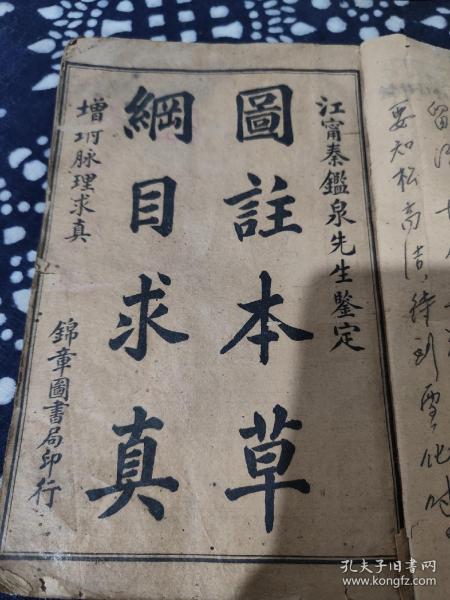 江甯秦鑑泉先生鑒定
圖註本草
綱目求真
增砢脉理求真
錦章圖書局印行
要知松高洁，待到雪化时
孔夫子旧书网
www.kongfz.com